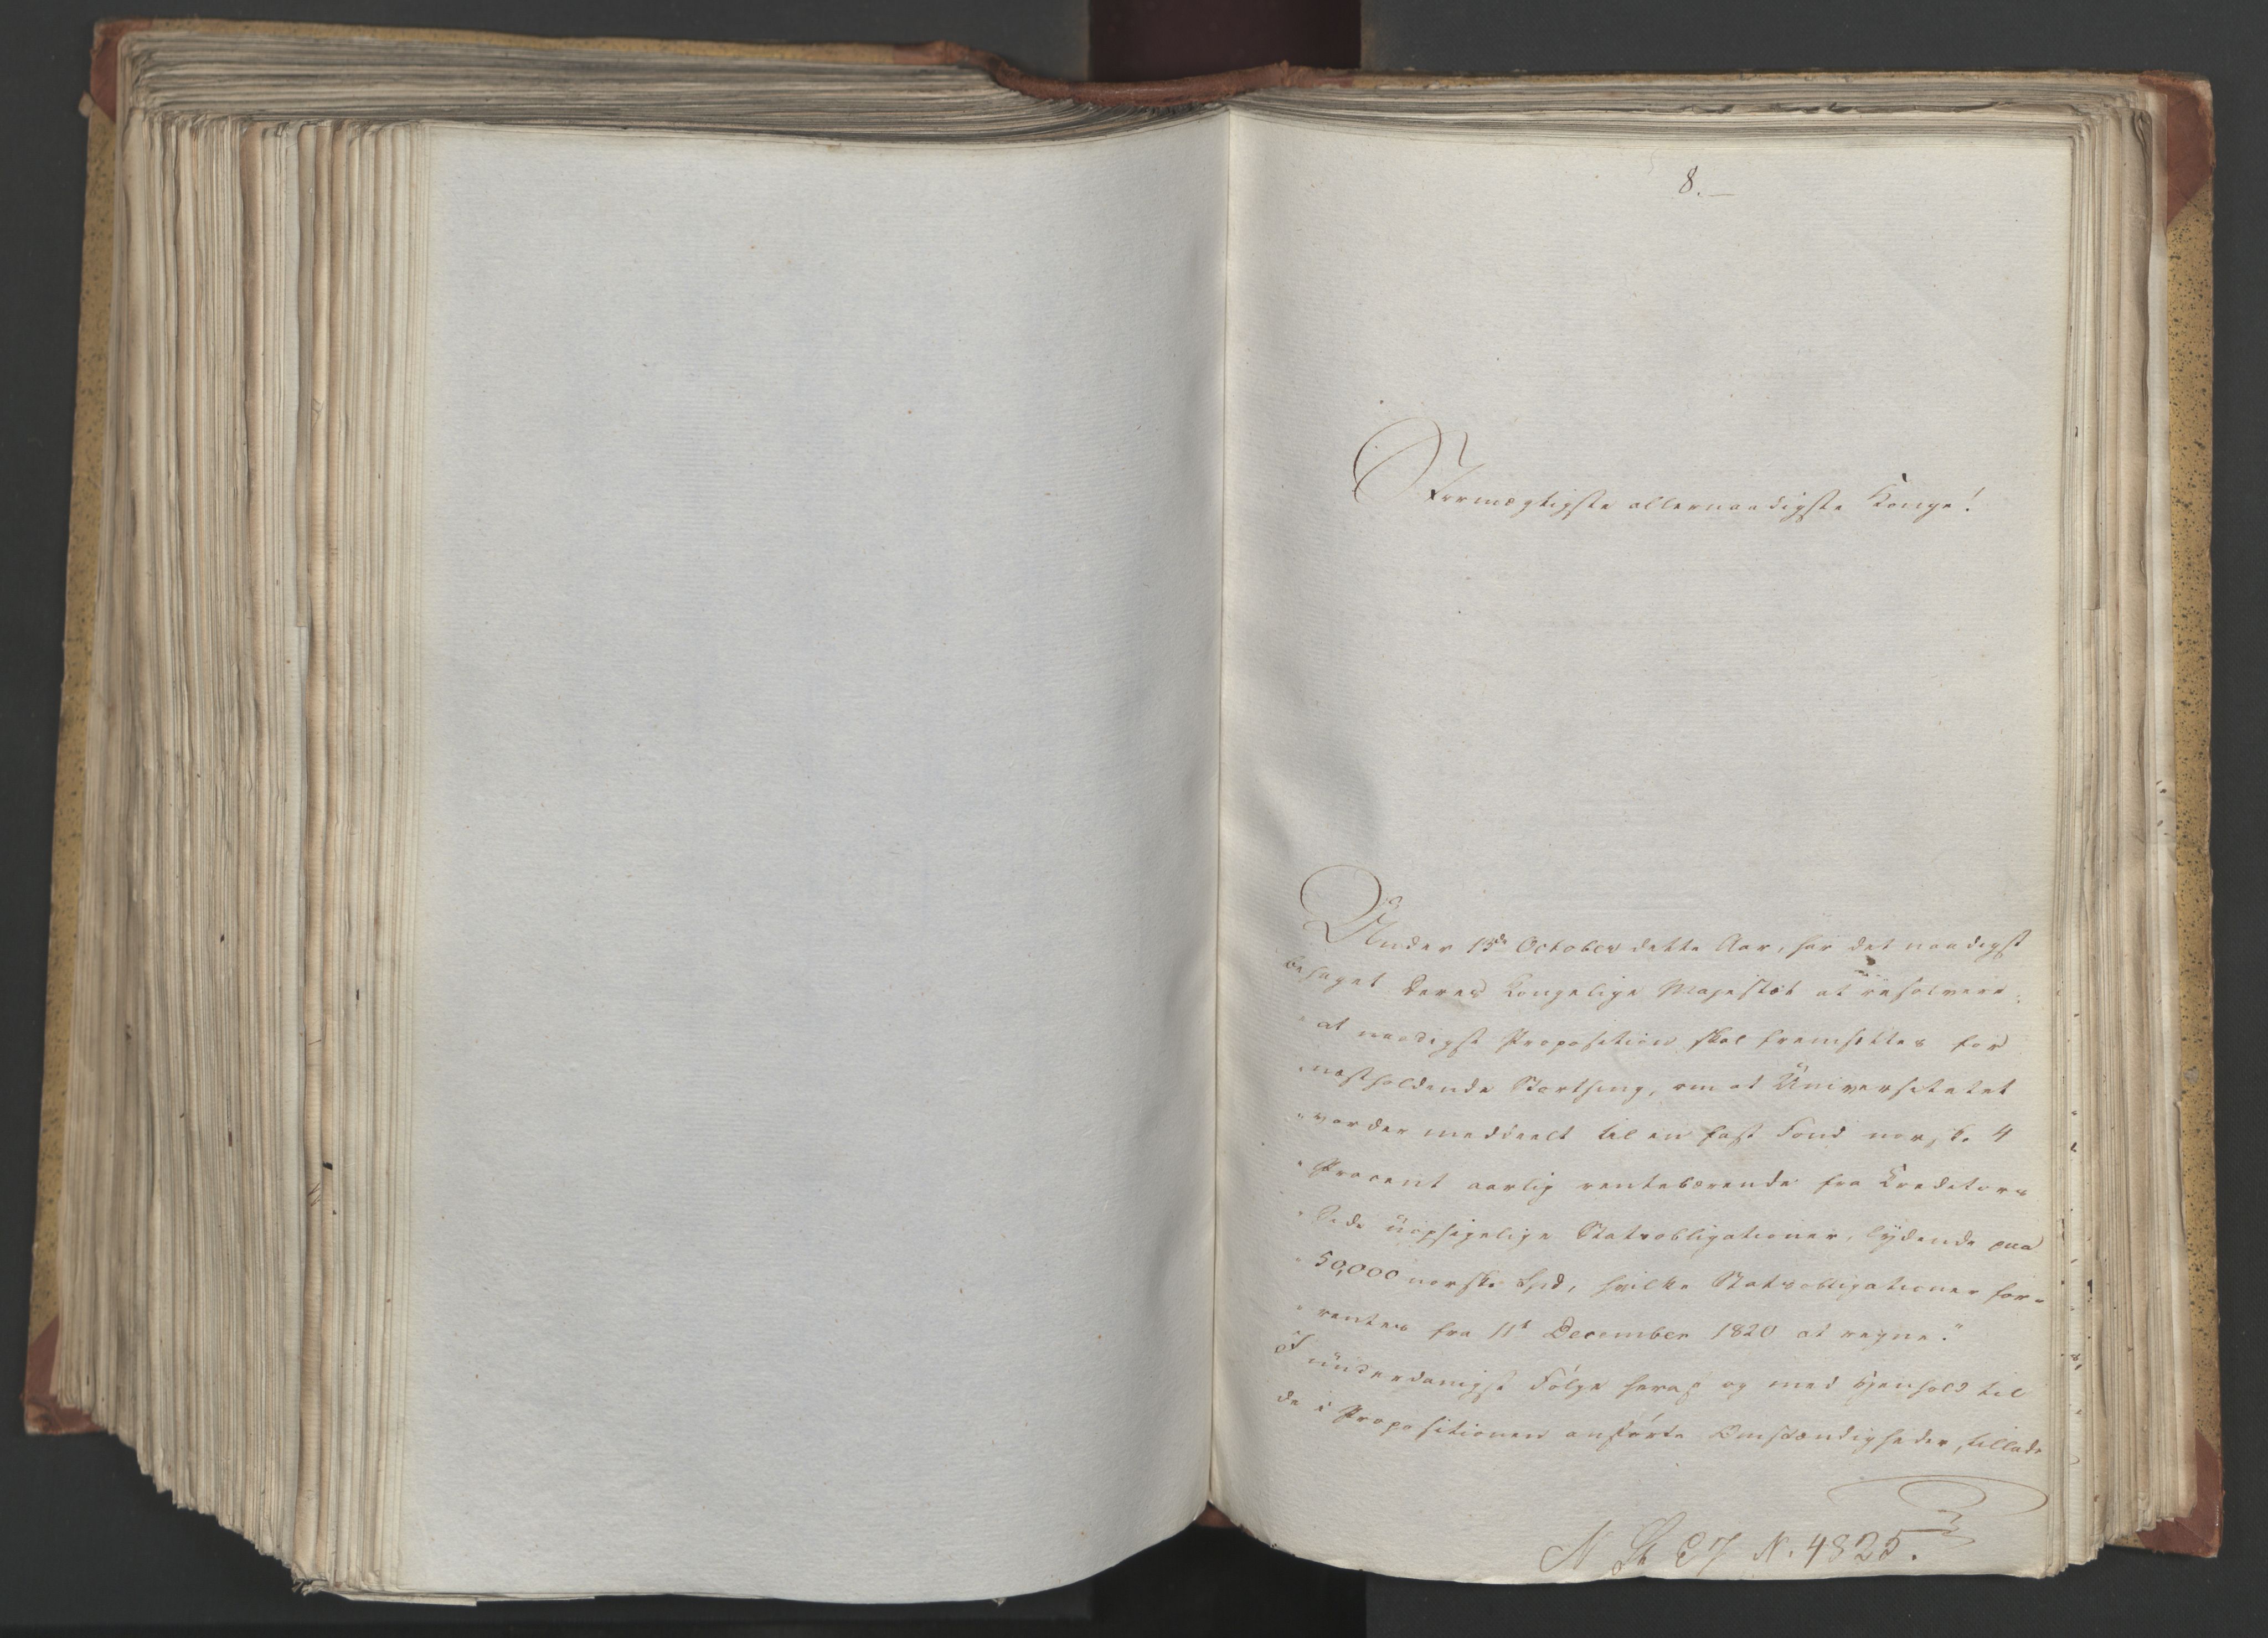 8.
Stormægtigste allernaadigste Konge!
Under 13de October dette Aar, har det naadigst
behaget Deres Kongelige Majestæt at resolvere:
"at naadigst Proposition skal fremsættes for
"næstholdende Storthing, om at Universitetet
"vorder meddeelt til en fast Fond norske 4
"Procent aarlig rentebærende fra Kreditors
"Side uopsigelige Statsobligationer, lydende paa
"50,000 norske Spd, hvilke Statsobligationer for-
"rentes fra 11t December 1820 at regne."
I underdanigst Følge heraf og med Henhold til
de i Propositionen anførte Omstændigheder, tillade
N. 4825.